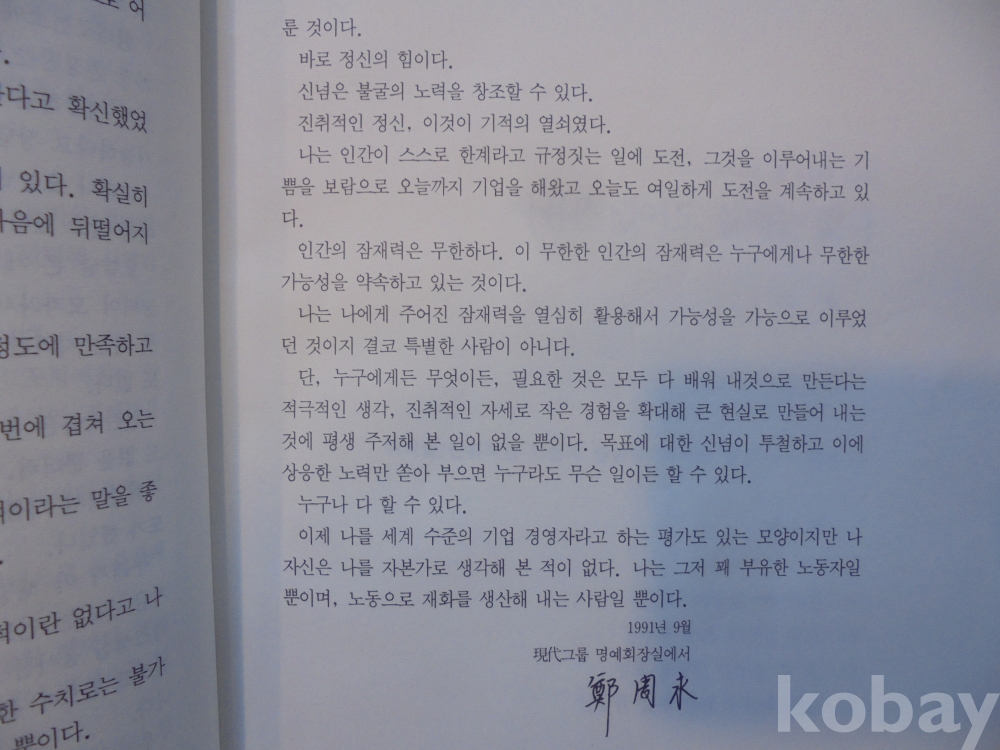 로 어
.
다고 확신했었
있다. 확실히
음에 뒤떨어지
정도에 만족하고
번에 겹쳐 오는
이라는 말을 좋
적이란 없다고 나
한 수치로는 불가
뿐이다.
룬 것이다.
바로 정신의 힘이다.
신념은 불굴의 노력을 창조할 수 있다.
진취적인 정신, 이것이 기적의 열쇠였다.
나는 인간이 스스로 한계라고 규정짓는 일에 도전, 그것을 이루어내는 기
쁨을 보람으로 오늘까지 기업을 해왔고 오늘도 여일하게 도전을 계속하고 있
다.
인간의 잠재력은 무한하다. 이 무한한 인간의 잠재력은 누구에게나 무한한
가능성을 약속하고 있는 것이다.
나는 나에게 주어진 잠재력을 열심히 활용해서 가능성을 가능으로 이루었
던 것이지 결코 특별한 사람이 아니다.
단, 누구에게든 무엇이든, 필요한 것은 모두 다 배워 내것으로 만든다는
적극적인 생각, 진취적인 자세로 작은 경험을 확대해 큰 현실로 만들어 내는
것에 평생 주저해 본 일이 없을 뿐이다. 목표에 대한 신념이 투철하고 이에
상응한 노력만 쏟아 부으면 누구라도 무슨 일이든 할 수 있다.
누구나 다 할 수 있다.
이제 나를 세계 수준의 기업 경영자라고 하는 평가도 있는 모양이지만 나
자신은 나를 자본가로 생각해 본 적이 없다. 나는 그저 꽤 부유한 노동자일
뿐이며, 노동으로 재화를 생산해 내는 사람일 뿐이다.
1991년 9월
現代그룹 명예회장실에서
鄭周永
kobay